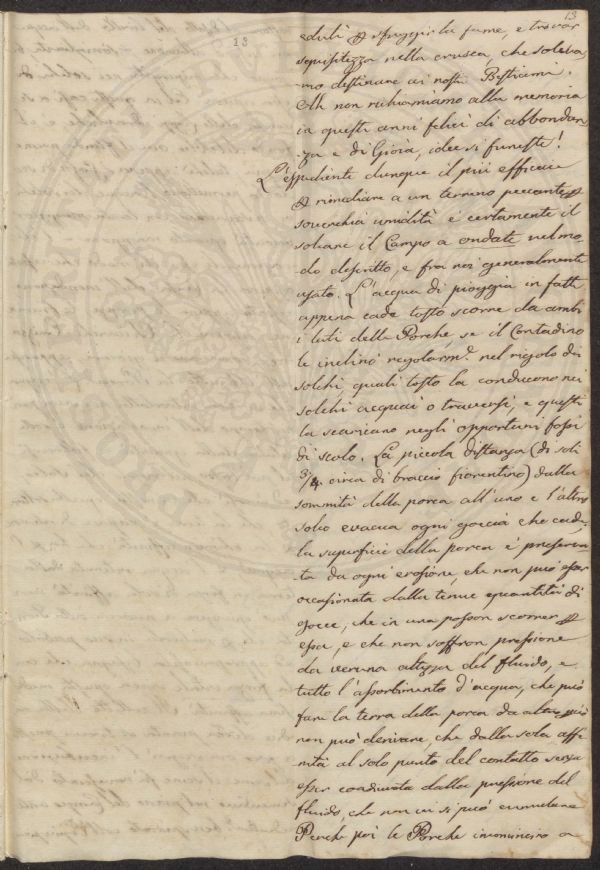 13.
13
eduli ꝑ sfuggir la fame, e trovar
squisitezza nella crusca, che soleva-
mo destinare ai nostri Bestiami.
Ah non richiamiamo alla memoria
in questi anni felici di abbondan-
za e di Gioia, idee sì funeste!
L'espediente dunque il più efficace
ꝑ rimediare a un terreno peccante ꝑ
soverchia umidità è certamente il
solcare il Campo a ondate nel mo-
do descritto, e fra noi generalmente
usato. L'acqua di pioggia in fatti
appena cade tosto scorre da ambi
i lati delle Porche, se il Contadino
le inclinò regolarm.e nel rigolo dei
solchi, quali tosto la conducono nei
solchi acquai o traversi, e questi
la scaricano negli opportuni fossi
di scolo. La piccola distanza (di soli
3/4 circa di braccio fiorentino) dalla
sommità della porca all'uno e l'altro
solco evacua ogni goccia che cade,
la superficie della porca è preserva-
ta da ogni erosione, che non può esser
occasionata dalla tenue quantità di
gocce, che in una posson scorrer ꝑ
essa, e che non soffron pressione
da veruna altezza del fluido, e
tutto l'assorbimento d'acqua, che può
fare la terra della porca da
non può derivare, che dalla sola affi-
nità al solo punto del contatto senza
esser coadiuvata dalla pressione del
fluido, che non vi si può cumulare
Perchè poi le Porche incomincino a